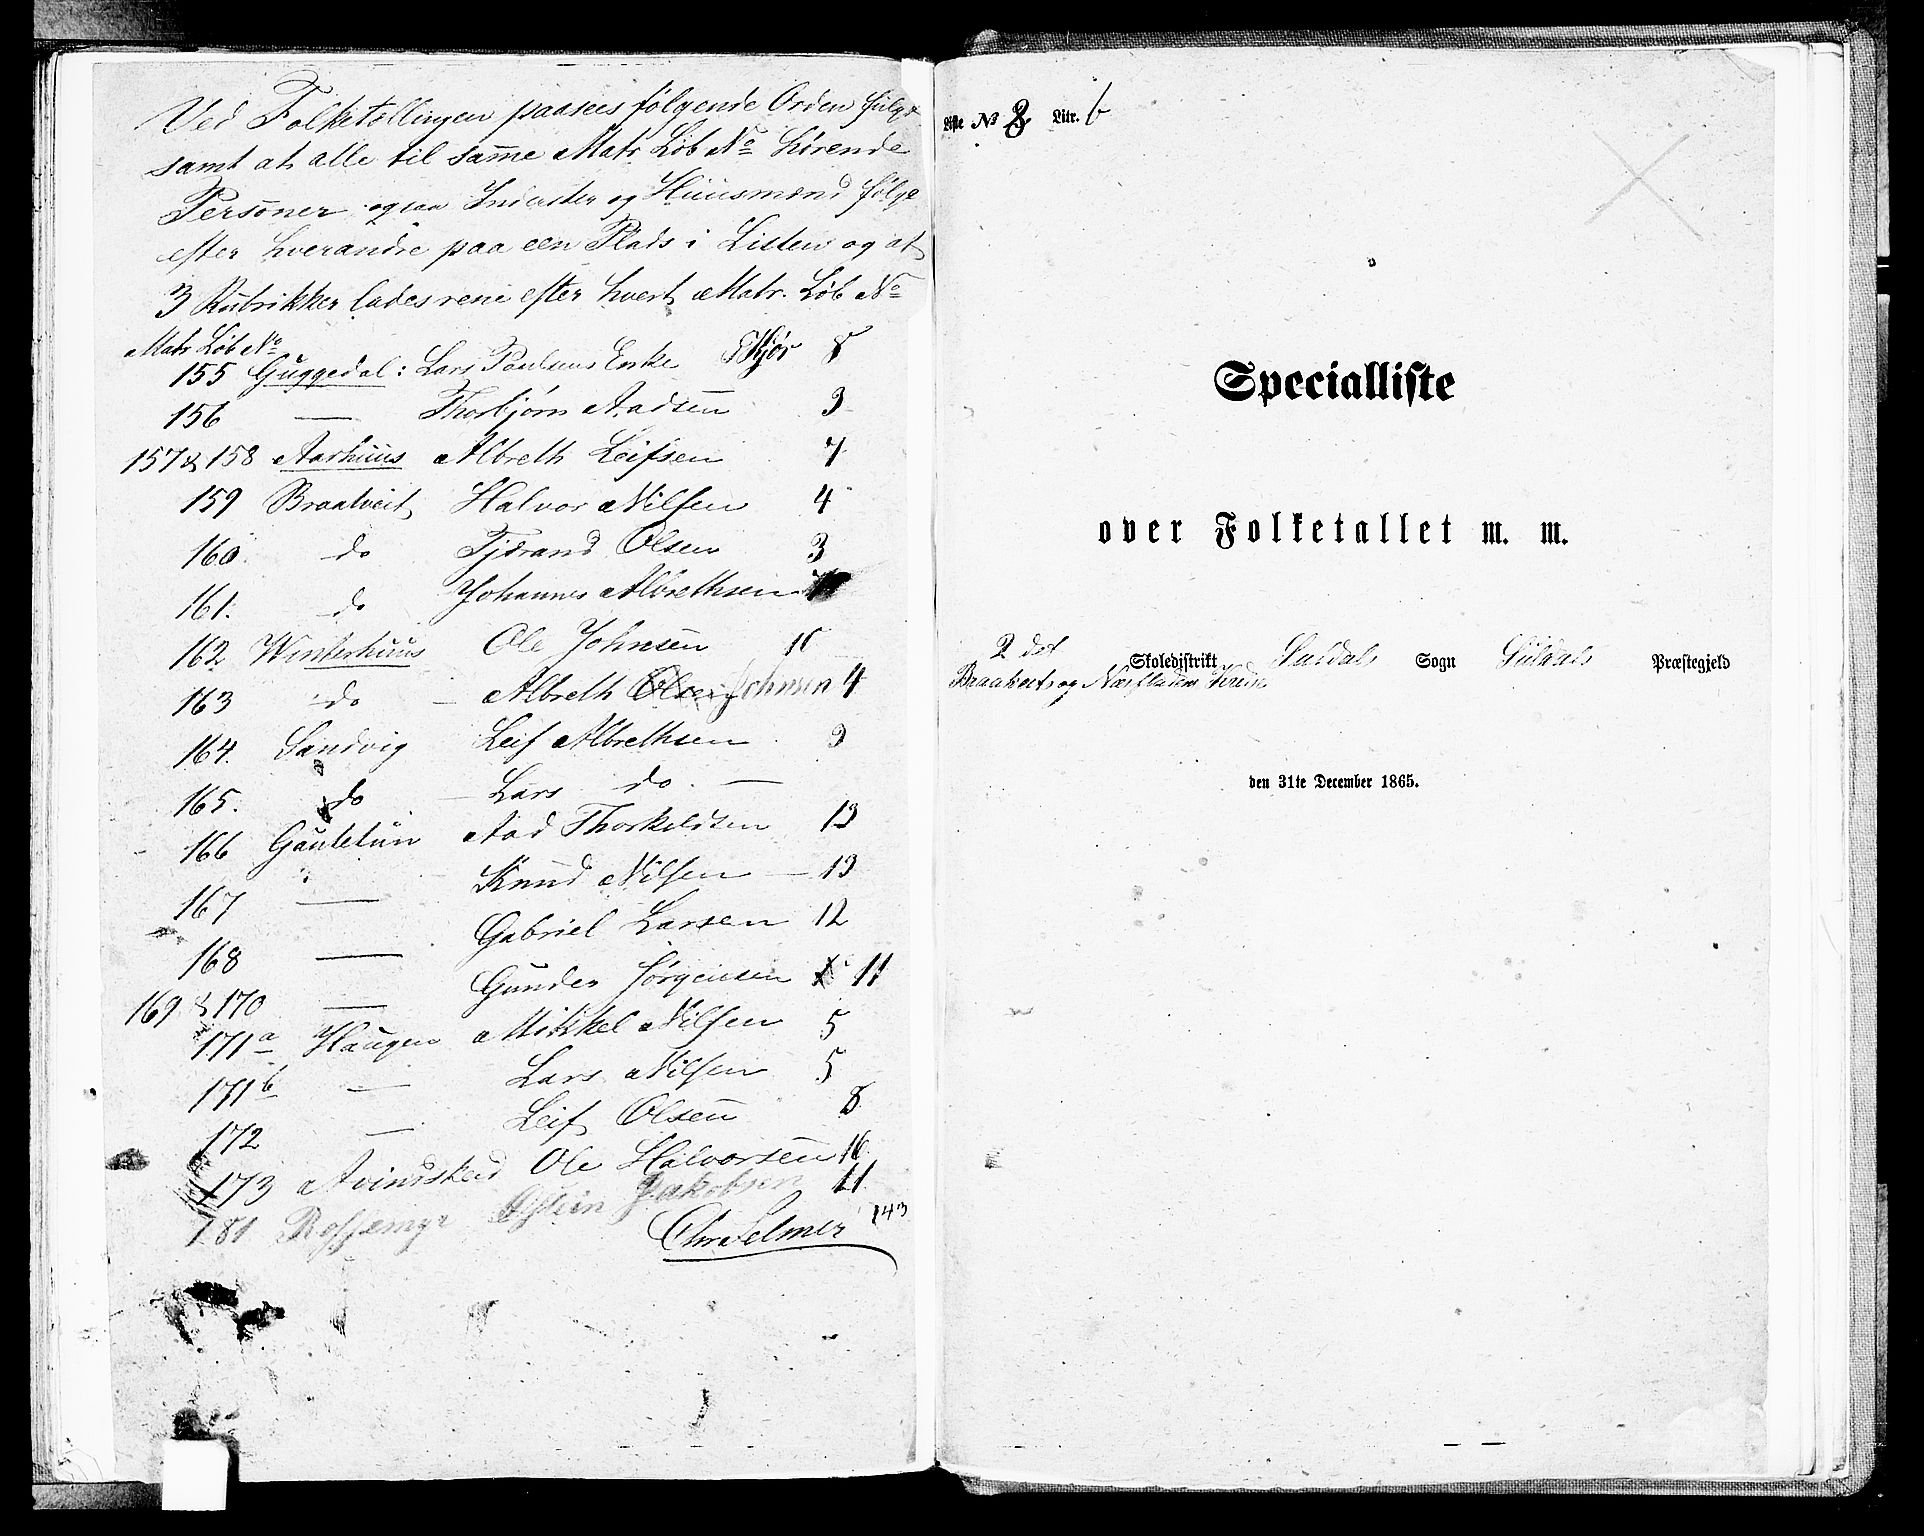 Ved Folketællingen paasees følgende Orden fulgt
samt at alle til samme Matr Løb No hørende
Personer ogsaa Inderster og Huusmænd følge
efter hverandre paa een Plads i Listen og at
3 Rubrikker lades rene efter hvert Matr. Løb No
Matr Løb No
155 Guggedal: Lars Paulsens Enke 8
156 — Thorbjørn Aadsen 3
157 & 158 Aarhuus Albreth Leifsen 7
159 Braatveit Halvor Nilsen 4
160. do Tjerand Olsen 3
161. do Johannes Albrethsen
162 Winterhuus Ole Johnsen
163 do — Albreth Olsen Johnsen 4
164. Sandvig Leif Albrethsen 9
165. do — Lars do. —
166 Gautetun Aad Thorkeldsen 13
167 — Knud Nilsen — 13
168 — Gabriel Larsen 12
169 & 170 — Gunder Jørgensen 11
171a Haugen Mikkel Nilsen 5
171b — Lars Nilsen 5
172 — Leif Olsen 8
173 Avindskeid Ole Halvorsen 10
181 Rossemyr Østein Jakobsen 11
Chr Selmer 143
Liste No 8 Litr. b
Specialliste
over Folketallet m. m.
2 det Skoledistrikt Suldals Sogn Suldals Præstegjeld
Braatveits og Næsfladens Kreds
den 31te December 1865.